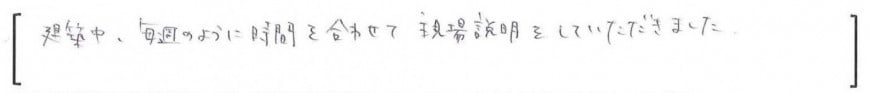 建築中、毎週のように時間を合わせて現場説明をしていただきました